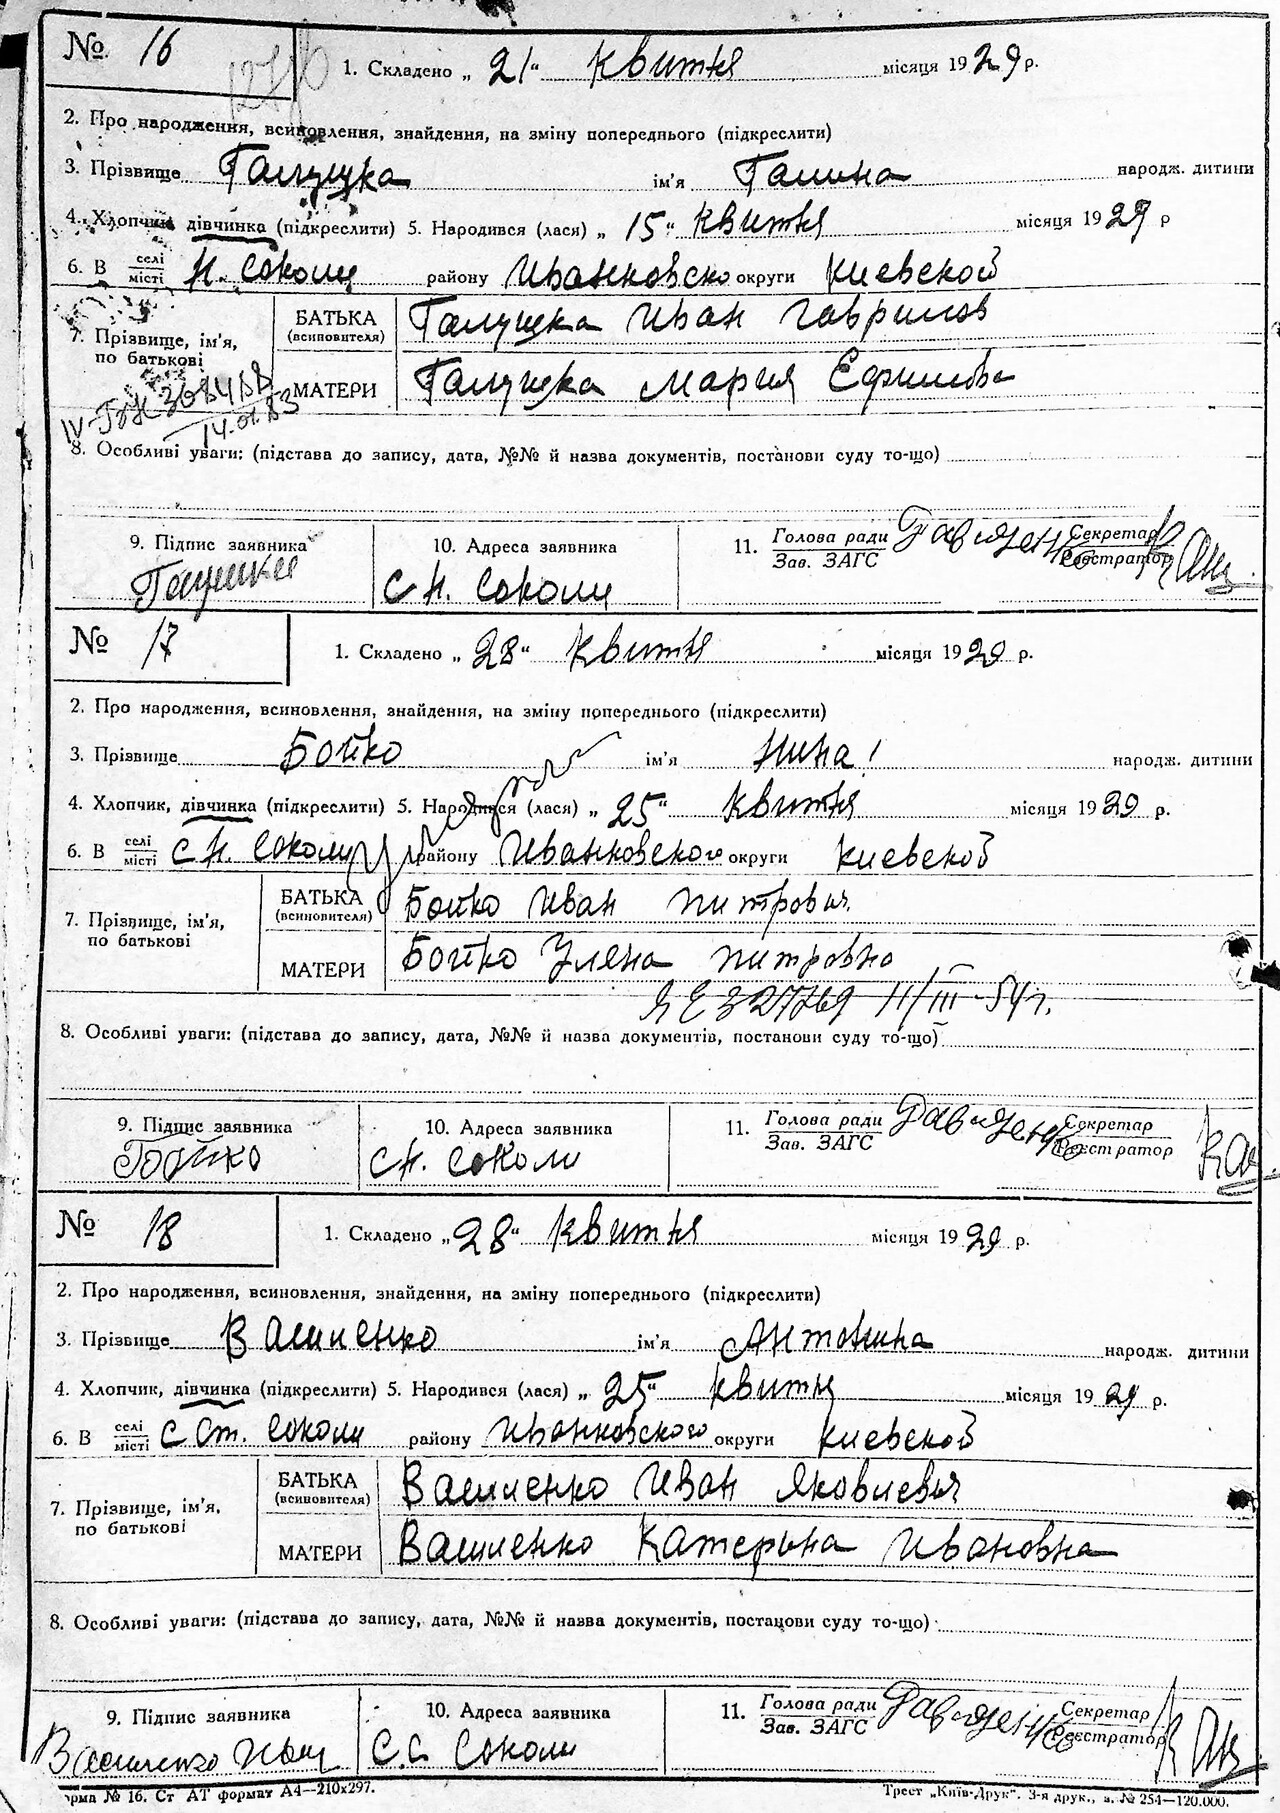 № 16
1. Складено „ 21 “ Квитня місяця 1929 р.
2. Про народження, всиновлення, знайдення, на зміну попереднього (підкреслити)
3. Прізвище Галущка ім'я Галина народж. дитини
4. Хлопчик, дівчинка (підкреслити) 5. Народився (лася) „ 15 “ Квитня місяця 1929 р
6. В селі/місті Н. Соколи району Иванковско округи Киевской
7. Прізвище, ім'я, по батькові
БАТЬКА (всиновителя) Галущка Иван Гаврилов
МАТЕРИ Галущка Мария Ефимовн
14.01.83
8. Особливі уваги: (підстава до запису, дата, №№ й назва документів, постанови суду то-що)
9. Підпис заявника
10. Адреса заявника с Н. Соколи
11. Голова ради/Зав. ЗАГС Давиденко Секретар/Реєстратор
№ 17
1. Складено „ 28 “ Квитня місяця 1929 р.
2. Про народження, всиновлення, знайдення, на зміну попереднього (підкреслити)
3. Прізвище Бойко ім'я Нина! народж. дитини
4. Хлопчик, дівчинка (підкреслити) 5. Народився (лася) „ 25 “ Квитня місяця 1929 р.
6. В селі/місті с Н. Соколи району Иванковского округи Киевской
7. Прізвище, ім'я, по батькові
БАТЬКА (всиновителя) Бойко Иван Питрович
МАТЕРИ Бойко Уляна Питровна
ЯЕ 327769 11/III-54 г.
8. Особливі уваги: (підстава до запису, дата, №№ й назва документів, постанови суду то-що)
9. Підпис заявника Бойко
10. Адреса заявника с Н. Соколи
11. Голова ради/Зав. ЗАГС Давиденко Секретар/Реєстратор
№ 18
1. Складено „ 28 “ Квитня місяця 1929 р.
2. Про народження, всиновлення, знайдення, на зміну попереднього (підкреслити)
3. Прізвище Василенко ім'я Антонина народж. дитини
4. Хлопчик, дівчинка (підкреслити) 5. Народився (лася) „ 25 “ Квитня місяця 1929 р.
6. В селі/місті с Ст. Соколи району Иванковского округи Киевской
7. Прізвище, ім'я, по батькові
БАТЬКА (всиновителя) Василенко Иван Яковлевич
МАТЕРИ Василенко Катерына Ивановна
8. Особливі уваги: (підстава до запису, дата, №№ й назва документів, постанови суду то-що)
9. Підпис заявника Василенко
10. Адреса заявника С.С. Соколи
11. Голова ради/Зав. ЗАГС Давиденко Секретар/Реєстратор
орма № 16. Ст АТ формат А4—210х297.
Трест „Київ-Друк“. 3-я друк., з. № 254—120.000.